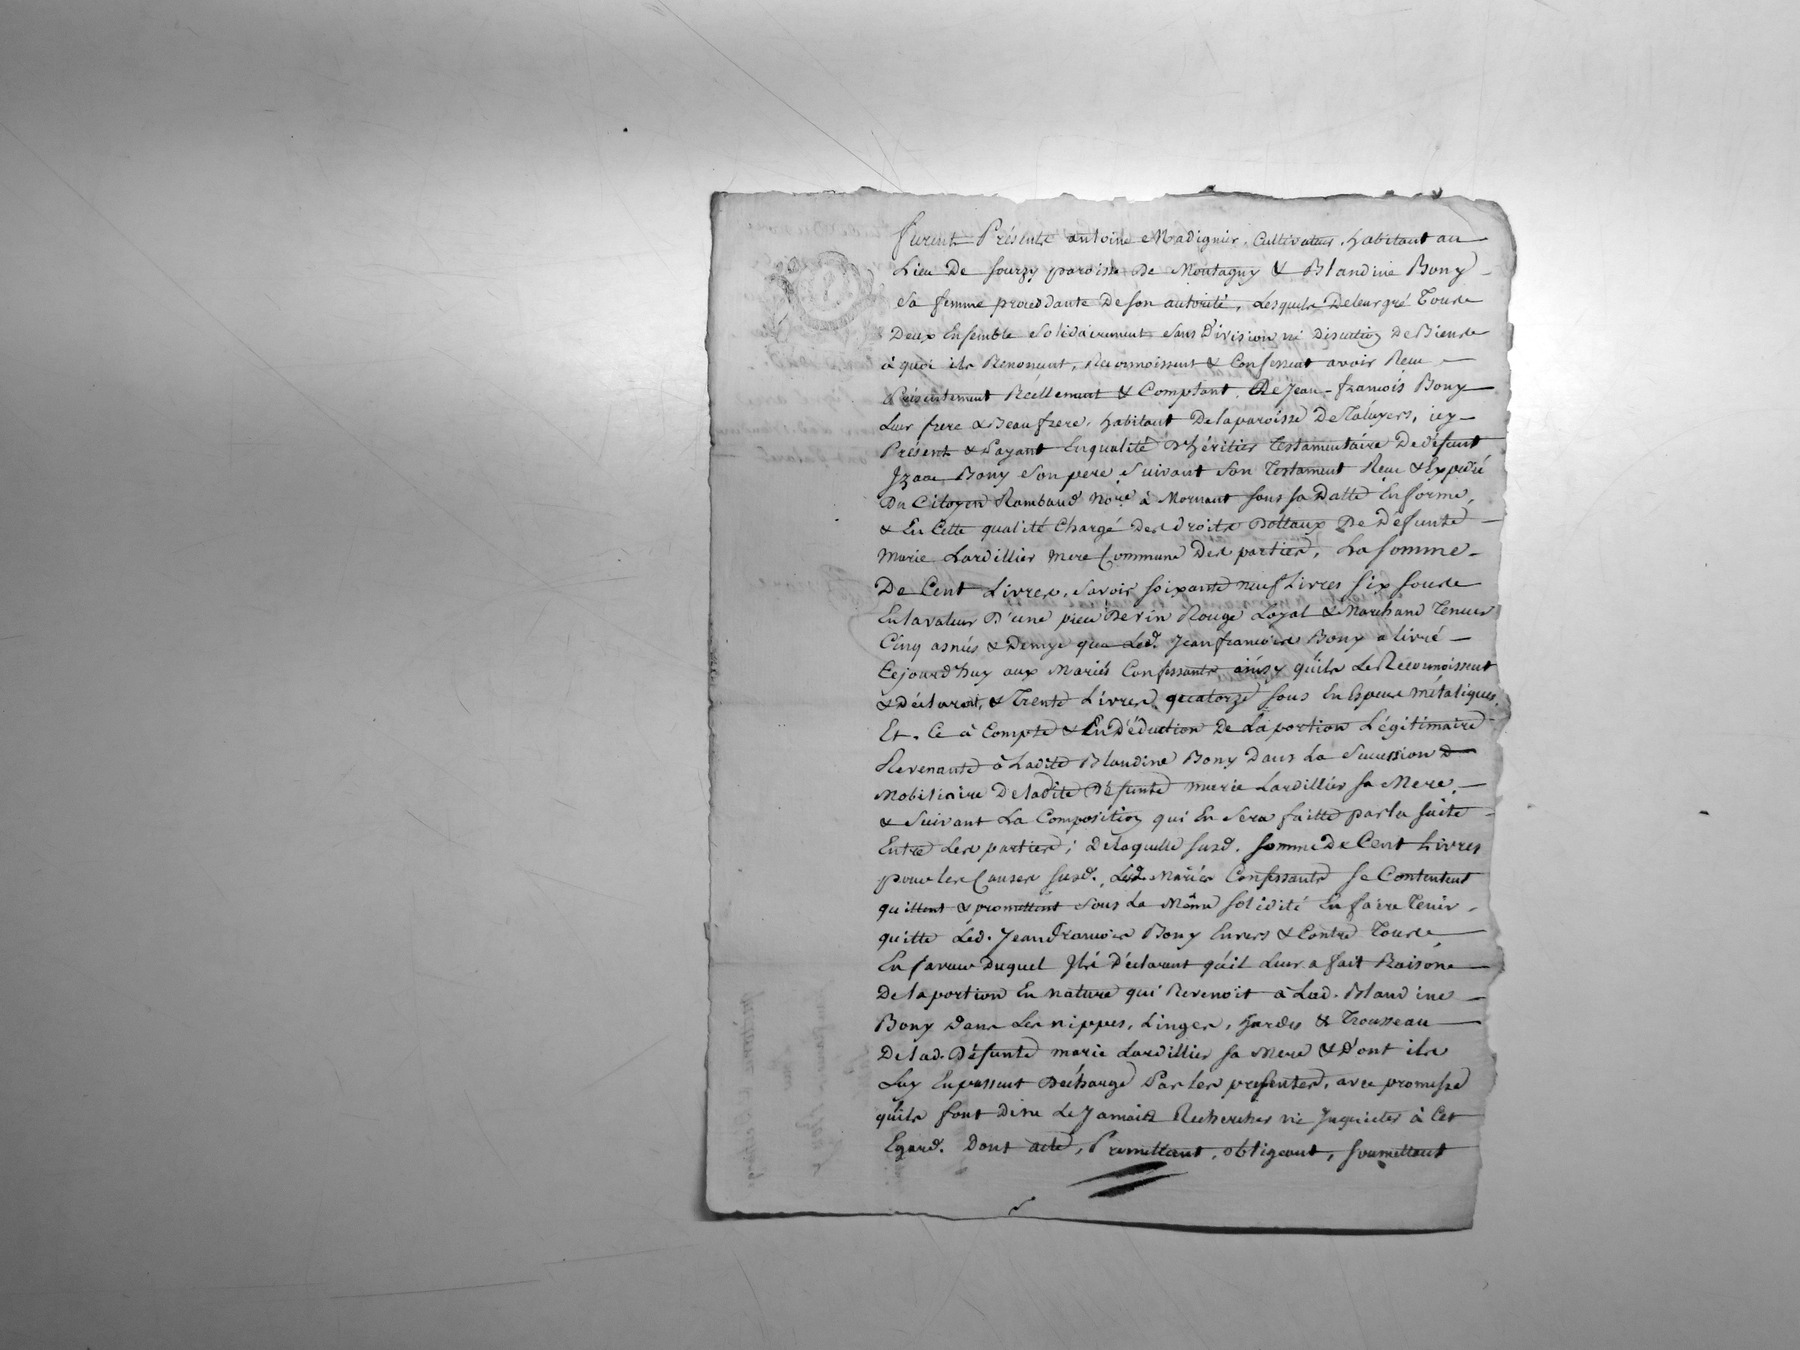 furent Présents antoine Madignier, Cultivateur, habitant au
Lieu De Sourzy paroisse De Montagny & Blandine Bony
Sa femme procedante De son autorité, Lesquels De leur gré Tous
Deux Ensemble Solidairement Sans Division ni Discution De Biens
à quoi ils Renoncent, Reconnoissent & Confessent avoir Receu
Présentement Réellement & Comptant, De Jean-françois Bony
Leur frere & Beaufrere, habitant De la paroisse De Taluyers, icy
Présent & Payant En qualité D'héritier Testamentaire De défunt
Izaac Bony Son pere, Suivant Son Testament Receu & Expedié
Du Citoyen Rambaud Nore. à Mornant sous sa Datte En forme,
& En Cette qualité Chargé des droits Dottaux De Défunte
Marie Lardillier mere Commune Des parties, La somme
De Cent Livres, Savoir soixante neuf Livres six sous
En la valeur D'une piece De vin Rouge Loyal & Marchand Tenues
Cinq asnées & Demye que Led. Jean françois Bony a livré
Cejourd'huy aux Mariés Confessants ainsy qu'ils Le Reconnoissent
& Déclarent, & Trente Livres quatorze sous En Espece métaliques,
Et. Ce à Compte & En D'éduction De La portion Légitimaire
Revenante à Ladite Blandine Bony Dans La Succession
Mobiliaire De ladite Défunte Marie Lardillier sa Mere,
& Suivant La Composition qui En Sera faitte par la suite
Entre Les parties; De laquelle susd. somme De Cent Livres
pour les Causes susd., Led. Mariés Confessants se Contentent
quittent & promettent Sous La Même solidité En faire Tenir
quitte Led. Jean François Bony Envers & Contre Tous
En faveur Duquel Ils Déclarent qu'il Leur a fait Raison
De la portion En nature qui Revenoit à Lad. Blandine
Bony dans Les nippes, Linges, Hardes & Trousseau
De lad. Défunte marie Lardillier sa Mere & D'ont ils
Luy En passent Décharge Par les présentes, avec promesse
qu'ils font De ne Le Jamais Rechercher ni Inquieter à Cet
Egard. Dont acte, Promettant, obligeant, soumettant